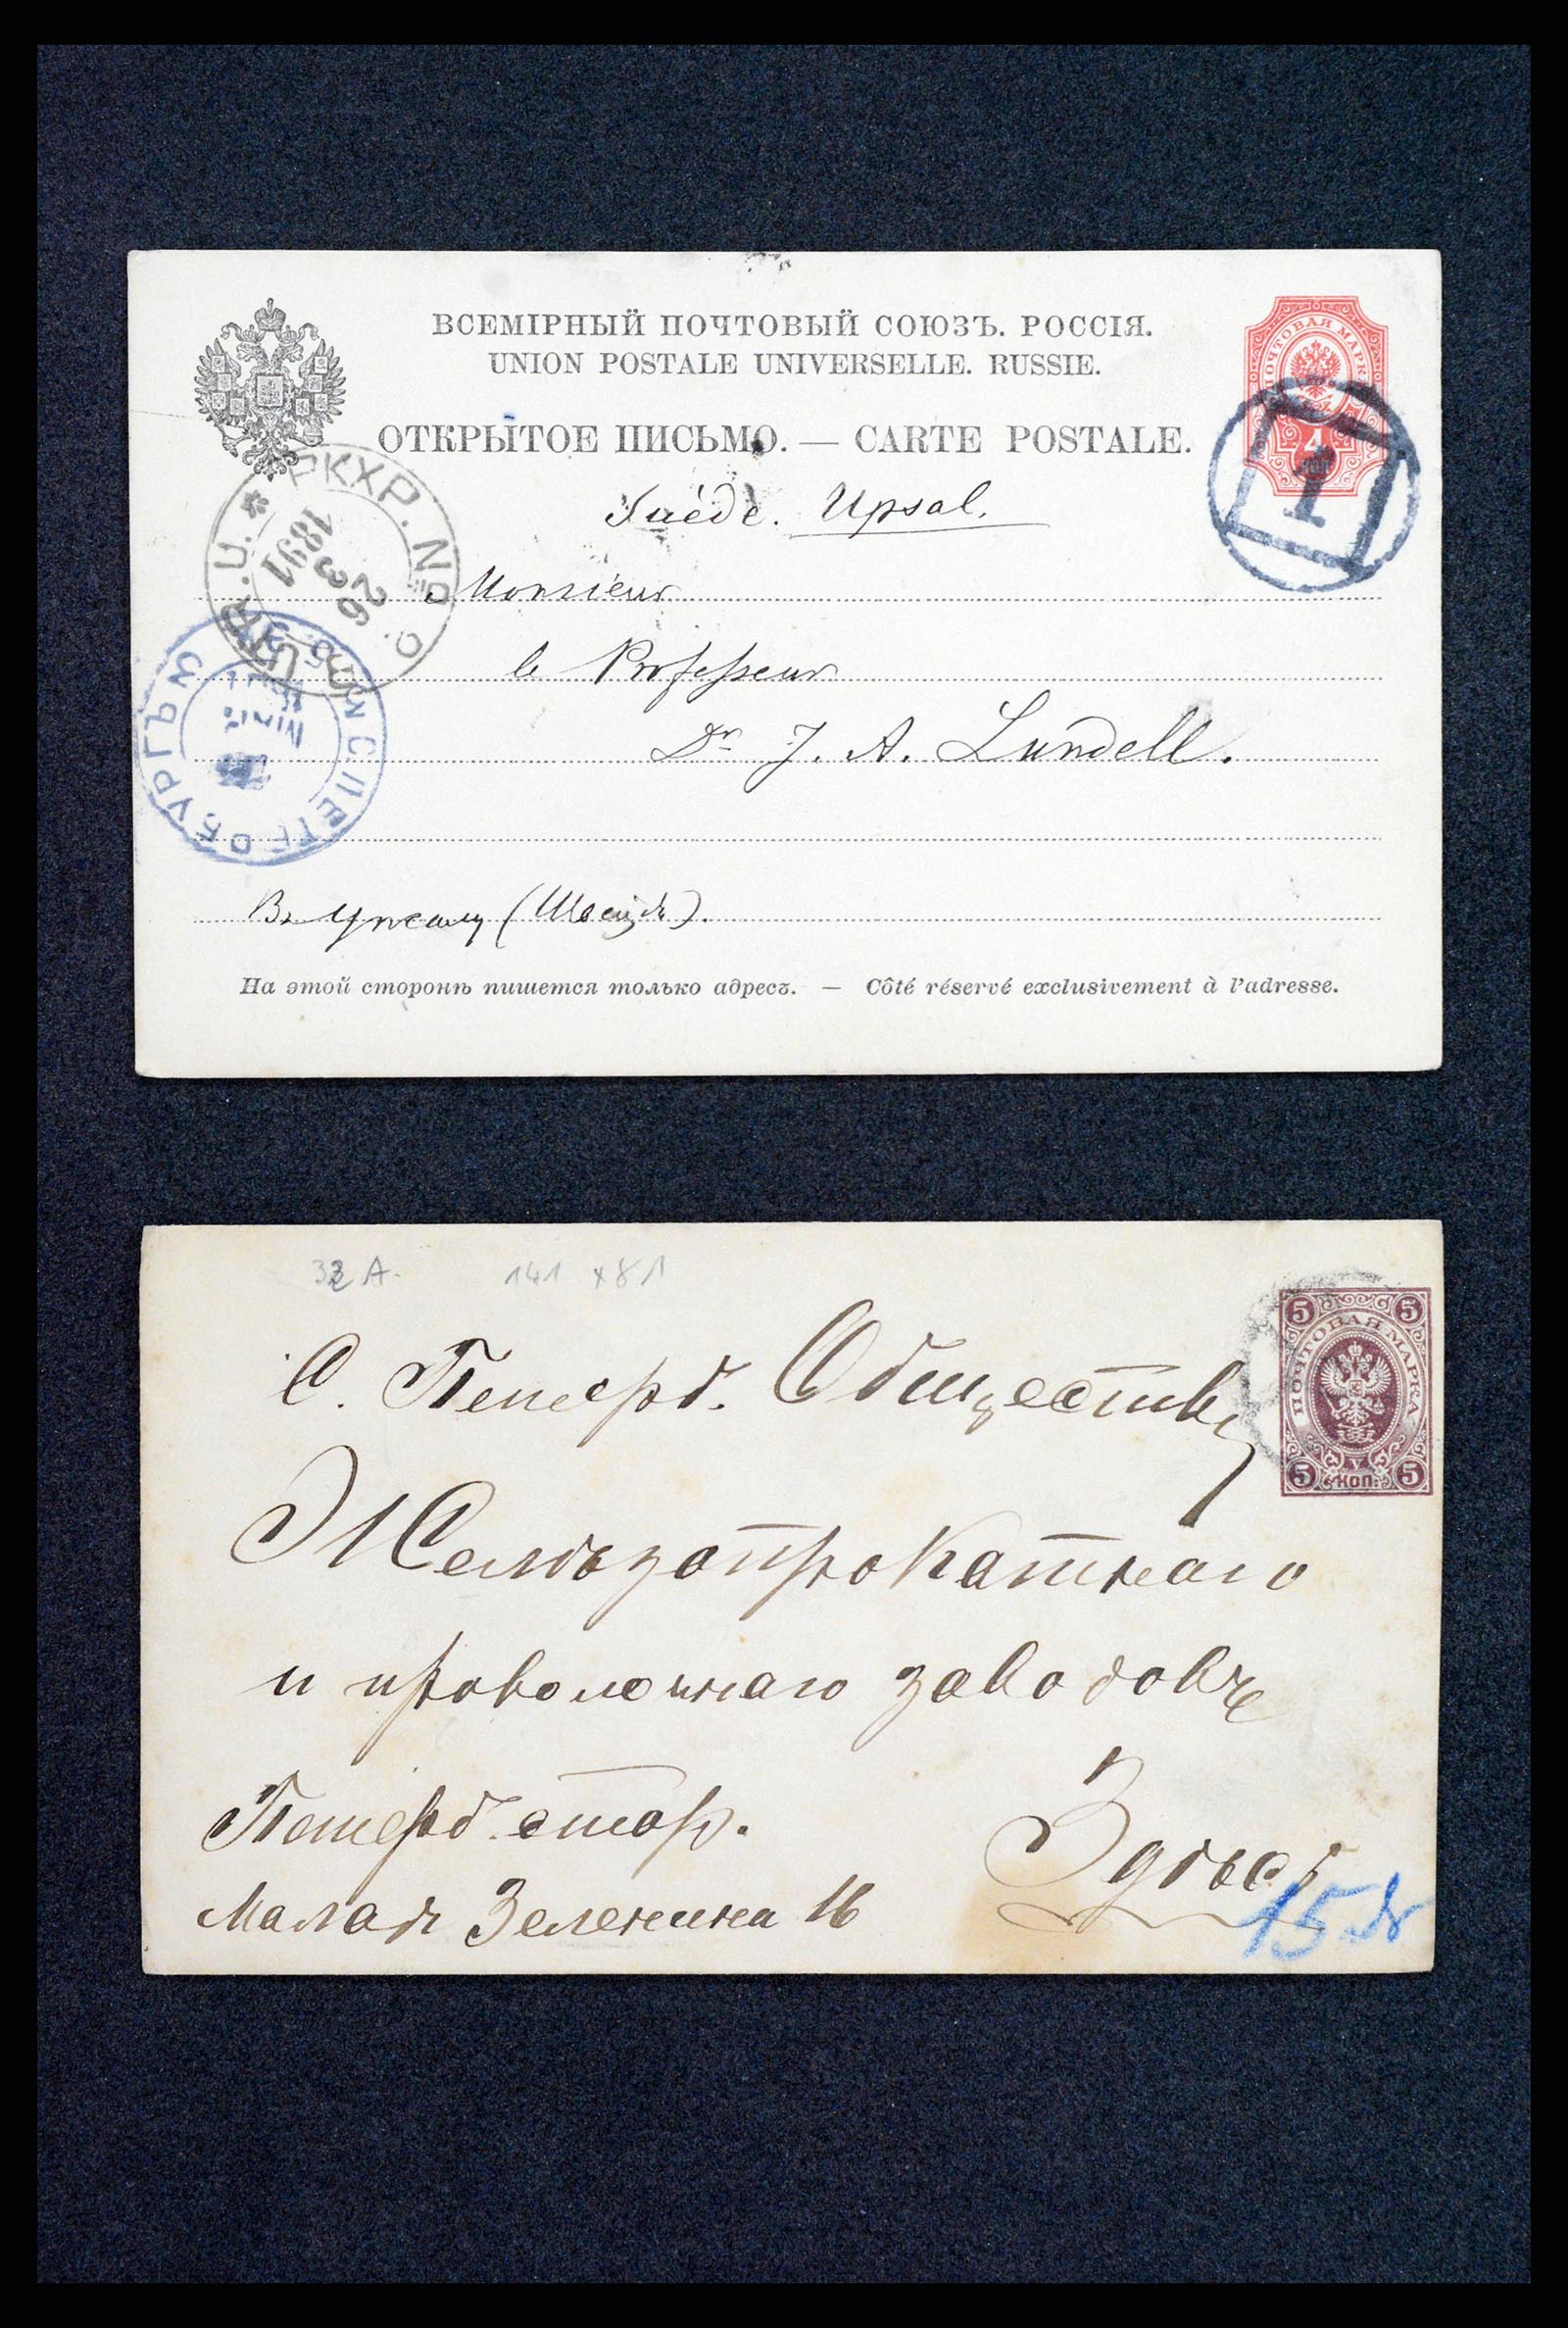 ВСЕМІРНЫЙ ПОЧТОВЫЙ СОЮЗЪ. РОССІЯ.
UNION POSTALE UNIVERSELLE. RUSSIE.
ОТКРЫТОЕ ПИСЬМО. — CARTE POSTALE.
ПОЧТОВАЯ МАРКА
4
КОП.
1
PKXP. No
26 3
1891
С.ПЕТЕРБУРГЪ
Suède. Upsal.
Monsieur
le Professeur
Dr J. A. Lundell.
Въ Упсалу (Швецiя).
На этой сторонѣ пишется только адресъ. — Côté réservé exclusivement à l'adresse.
141 x 81
5 5
ПОЧТОВАЯ МАРКА
5 КОП. 5
С. Петерб. Обществу
Желѣзопрокатнаго
и проволочнаго заводовъ
Петерб. стор.
Малая Зеленина 16
Здѣсь
15